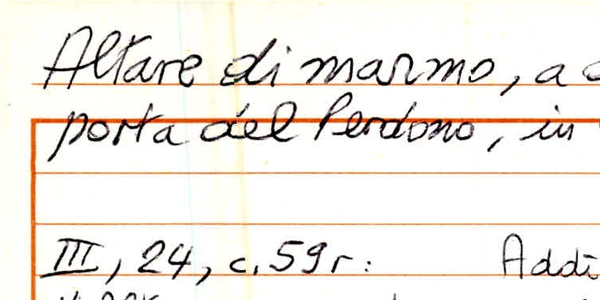 Altare di marmo, a
porta del Perdono, in
III, 24, c. 59r: Addi